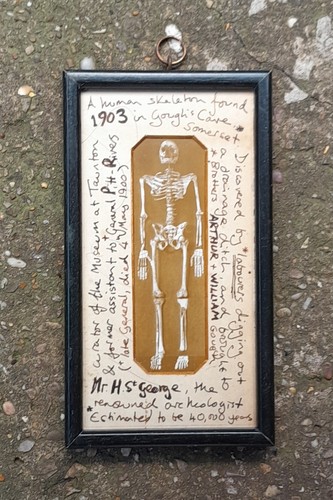 A human skeleton found
1903 in Gough's Cave*
Somerset
* Discovered by *labourers digging out
a drainage ditch and
* Brothers ARTHUR + WILLIAM Gough
Mr H. St George, the
*renowned archeologist
Estimated to be 40,000 years
Curator of the Museum at Taunton
& former assistant to *General Pitt Rivers
(*late General, died 4th May 1900)